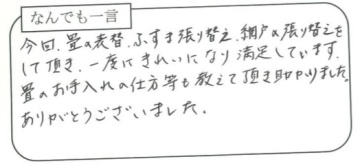 なんでも一言
今回、畳の表替、ふすま張り替え、網戸の張り替えを
して頂き、一度にきれいになり満足しています。
畳のお手入れの仕方等も教えて頂き助かりました。
ありがとうございました。